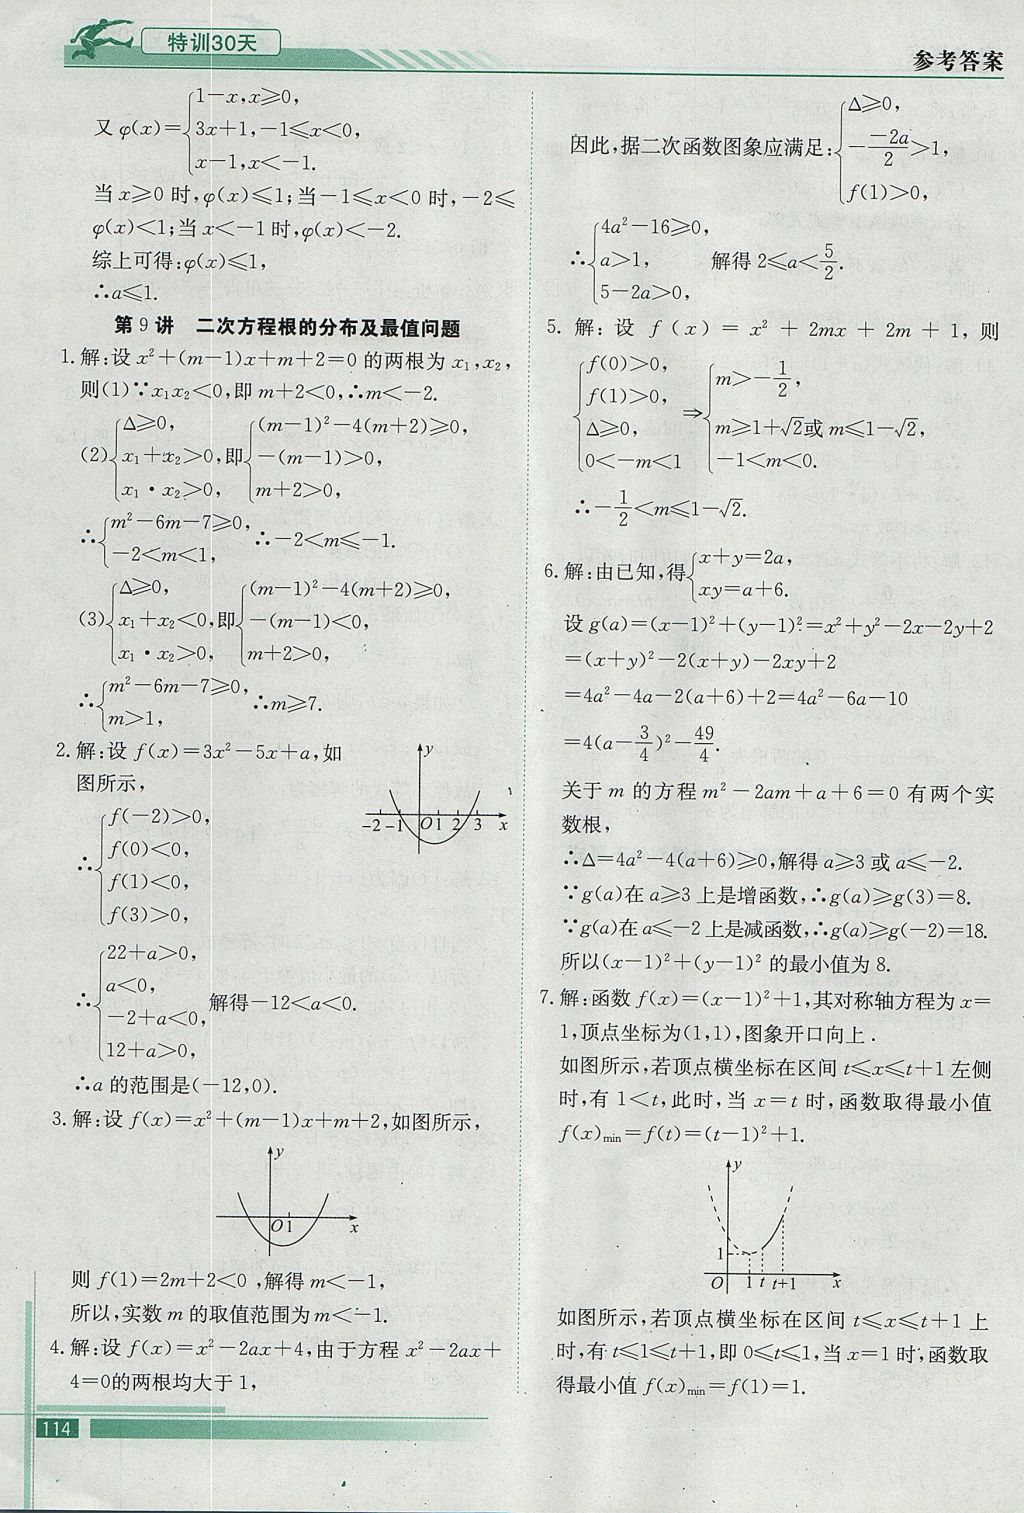 特训30天
参考答案
又φ(x)={1-x,x≥0,
3x+1,-1≤x<0,
x-1,x<-1.
当x≥0时,φ(x)≤1;当-1≤x<0时,-2≤
φ(x)<1;当x<-1时,φ(x)<-2.
综上可得:φ(x)≤1,
∴a≤1.
第9讲 二次方程根的分布及最值问题
1.解:设x²+(m-1)x+m+2=0的两根为x₁,x₂,
则(1)∵x₁x₂<0,即m+2<0,∴m<-2.
(2){Δ≥0, x₁+x₂>0, x₁·x₂>0, 即{(m-1)²-4(m+2)≥0, -(m-1)>0, m+2>0,
∴{m²-6m-7≥0, -2<m<1, ∴-2<m≤-1.
(3){Δ≥0, x₁+x₂<0, x₁·x₂>0, 即{(m-1)²-4(m+2)≥0, -(m-1)<0, m+2>0,
∴{m²-6m-7≥0, m>1, ∴m≥7.
2.解:设f(x)=3x²-5x+a,如
图所示,
y
-2 -1 O 1 2 3 x
∴{f(-2)>0,
f(0)<0,
f(1)<0,
f(3)>0,
∴{22+a>0,
a<0,
-2+a<0,
12+a>0,
解得-12<a<0.
∴a的范围是(-12,0).
3.解:设f(x)=x²+(m-1)x+m+2,如图所示,
y
O 1 x
则f(1)=2m+2<0,解得m<-1,
所以,实数m的取值范围为m<-1.
4.解:设f(x)=x²-2ax+4,由于方程x²-2ax+
4=0的两根均大于1,
114
因此,据二次函数图象应满足:{Δ≥0, -\frac{-2a}{2}>1, f(1)>0,
∴{4a²-16≥0, a>1, 5-2a>0, 解得2≤a<\frac{5}{2}.
5. 解:设f(x)=x²+2mx+2m+1,则
{f(0)>0, f(1)>0, Δ≥0, 0<-m<1 ⇒{m>-\frac{1}{2}, m≥1+√2或m≤1-√2, -1<m<0.
∴-\frac{1}{2}<m≤1-√2.
6.解:由已知,得{x+y=2a, xy=a+6.
设g(a)=(x-1)²+(y-1)²=x²+y²-2x-2y+2
=(x+y)²-2(x+y)-2xy+2
=4a²-4a-2(a+6)+2=4a²-6a-10
=4(a-\frac{3}{4})²-\frac{49}{4}.
关于m的方程m²-2am+a+6=0有两个实
数根,
∴Δ=4a²-4(a+6)≥0,解得a≥3或a≤-2.
∵g(a)在a≥3上是增函数,∴g(a)≥g(3)=8.
∵g(a)在a≤-2上是减函数,∴g(a)≥g(-2)=18.
所以(x-1)²+(y-1)²的最小值为8.
7.解:函数f(x)=(x-1)²+1,其对称轴方程为x=
1,顶点坐标为(1,1),图象开口向上.
如图所示,若顶点横坐标在区间t≤x≤t+1左侧
时,有1<t,此时,当x=t时,函数取得最小值
f(x)min=f(t)=(t-1)²+1.
y
1
O 1 t t+1 x
如图所示,若顶点横坐标在区间t≤x≤t+1上
时,有t≤1≤t+1,即0≤t≤1,当x=1时,函数取
得最小值f(x)min=f(1)=1.